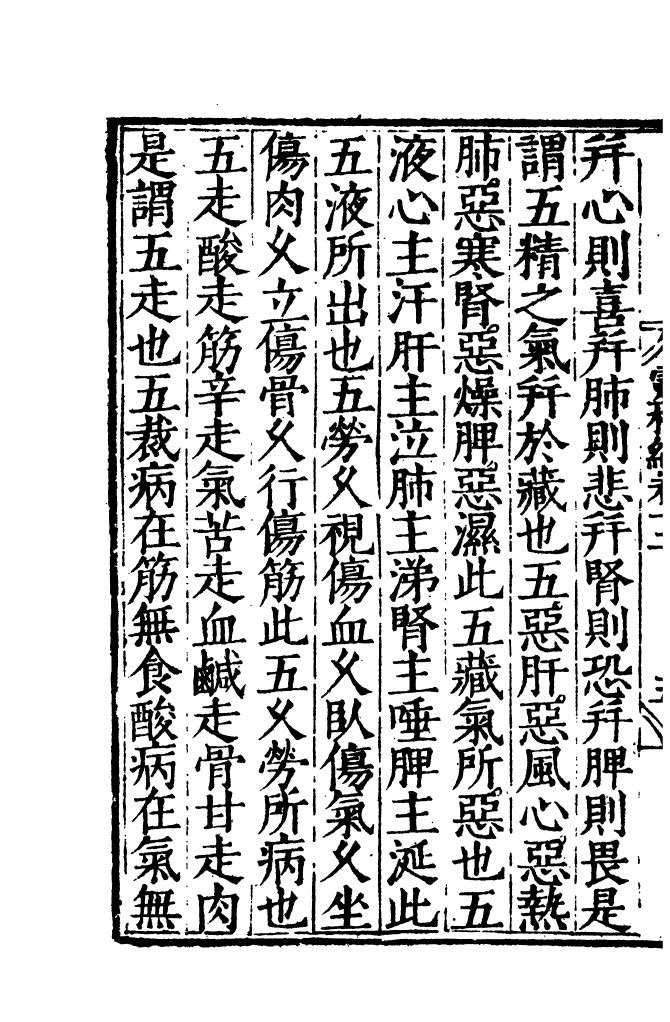 幷心則喜幷肺則悲幷腎則恐幷脾則畏是
謂五精之氣幷於藏也五惡肝惡風心惡熱
肺惡寒腎惡燥脾惡濕此五藏氣所惡也五
液心主汗肝主泣肺主涕腎主唾脾主涎此
五液所出也五勞久視傷血久臥傷氣久坐
傷肉久立傷骨久行傷筋此五久勞所病也
五走酸走筋辛走氣苦走血鹹走骨甘走肉
是謂五走也五裁病在筋無食酸病在氣無